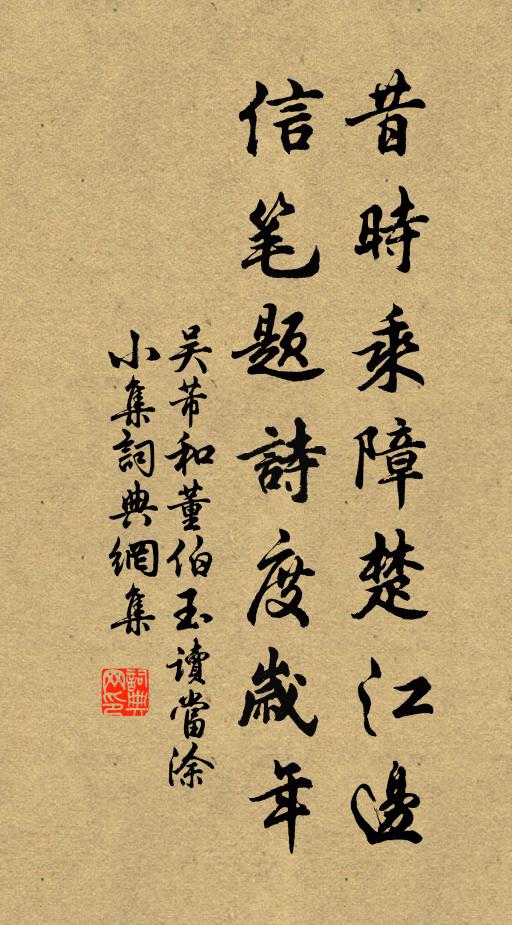 昔時乘障楚江邊
信笔题詩度歲年
吴芾和董伯玉讀當涂
小集詞典網集
詞典
网印